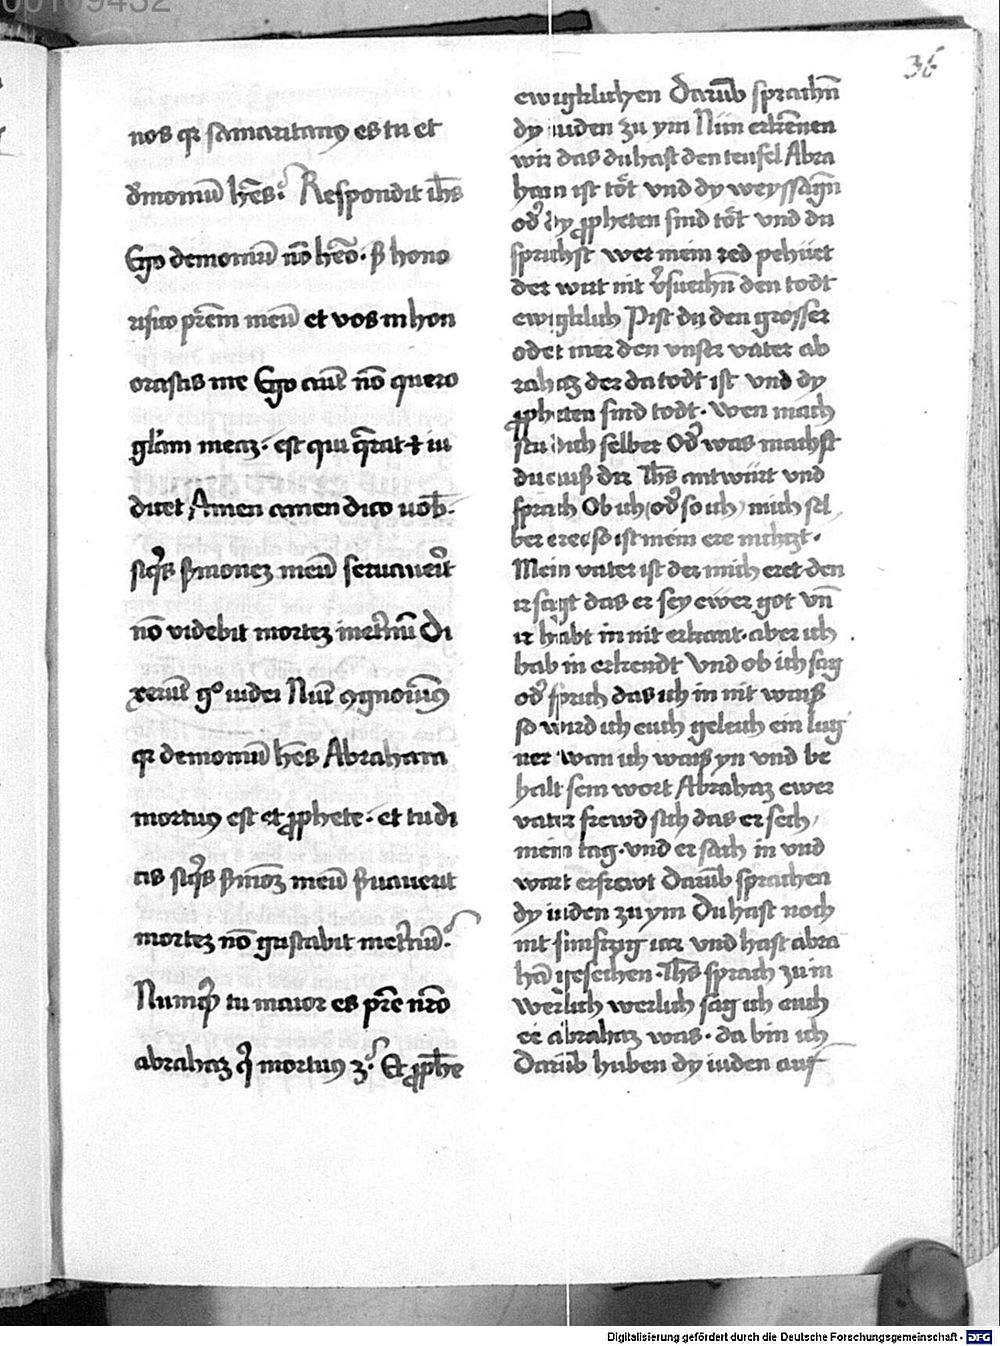 36
nos qꝛ samaritanꝯ es tu et
dꝛ̄moniū hēs. Respondit ih̄s
Ego demoniū nō hēo. ꝑ hono
rifico prēm meū et vos inhon
orastis me Ego aūt nō quero
gl̄am meaꝫ. est qui q̄rat ⁊ iu
dicet Amen amen dico uob̄.
siq̄s ẜmoneꝫ meū seruauerit
nō videbit morteꝫ inet̄nū Di
xerūt gͦ iudei Nūc ꝯgnouimꝯ
qꝛ demoniū hēs Abraham
mortuꝯ est et ꝓphete. et tu di
cis siq̄s ẜmōꝫ meū ẜuauerit
morteꝫ nō gustabit inet̄nū.
Numqͥd tu maior es pr̄e nr̄o
abrahaꝫ qͥ mortuꝯ ꝫ. Et ꝓph̄e
ewigklichen Darūb sprachn̄
dy iuden zu ym Nun erkēnen
wir das du hast den teufel Abra
ham ist tot vnd dy weyssagn̄
od̄ dy ꝓpheten sind tot vnd du
sprichst wer mein red pehüet
der wirt nit v̄suechn̄ den todt
ewigklich Pist du den grosser
oder mer den vnser vater ab
rahaꝫ der da todt ist vnd dy
ꝓpheten sind todt. Wen mach
stu dich selber Od̄ was machst
du auß dir Ih̄s antwürt vnd
sprach Ob ich (od̄ so ich) mich sel
ber eree so ist mein ere nichtzt.
Mein vater ist der mich eret den
ir sagt das er sey ewer got vn̄
ir habt in nit erkant. aber ich
hab in erkendt Vnd ob ich sag
od̄ sprich das ich in nit waiß
so wird ich euch geleich ein lug
ner Wan ich waiß yn vnd be
halt sein wort Abrahaꝫ ewer
vater frewd sich das er sech
mein tag. vnd er sach in vnd
wart erfrewt Darūb sprachen
dy iuden zu ym Du hast noch
nit funfczig iar vnd hast abra
hā gesechen. Ih̄s sprach zu in
Werlich werlich sag ich euch
ee abrahaꝫ was. da bin ich
Darūb huben dy iuden auf
Digitalisierung gefördert durch die Deutsche Forschungsgemeinschaft - DFG